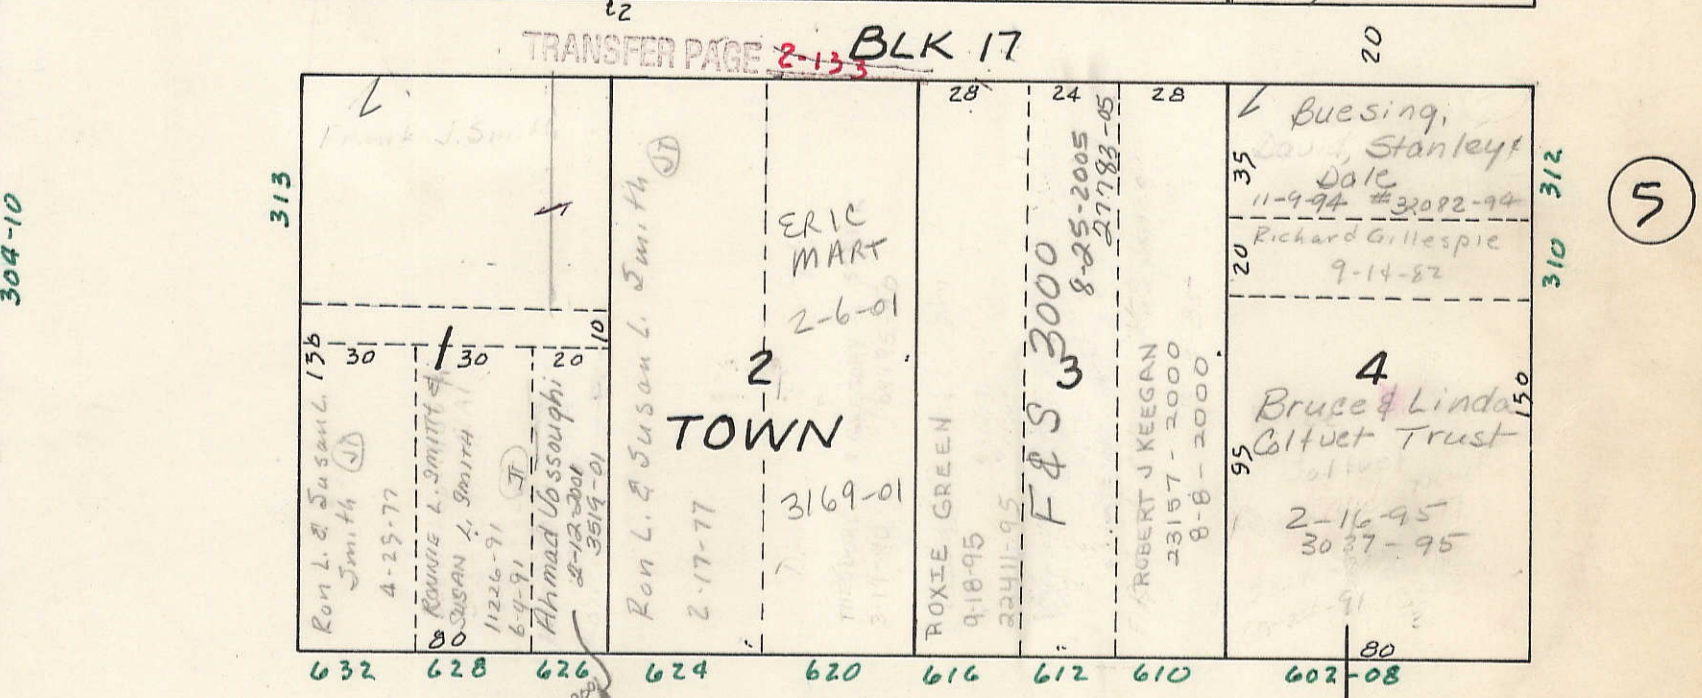 22
TRANSFER PAGE 2-133 BLK 17
20
304-10
313
Frank J. Smith
10
136 30
30
20
1
Ron L. & Susan L.
Smith JT
4-29-77
RONNIE L. SMITH &
SUSAN L. SMITH
JT
11226-91
6-4-91
Ahmad Vossoughi
2-12-2001
3519-01
80
Ron L. & Susan L. Smith JT
2-17-77
2
TOWN
ERIC
MART
2-6-01
3169-01
28
24
28
ROXIE GREEN
9-18-95
22411-95
F & S 3000
8-25-2005
27783-05
3
ROBERT J KEEGAN
23157-2000
8-8-2000
Buesing,
Stanley &
Dale
11-9-94 #32082-94
35
Richard Gillespie
9-14-82
20
4
Bruce & Linda
Coltvet Trust
2-16-95
95
150
80
312
310
5
632
628
626
624
620
616
612
610
602-08